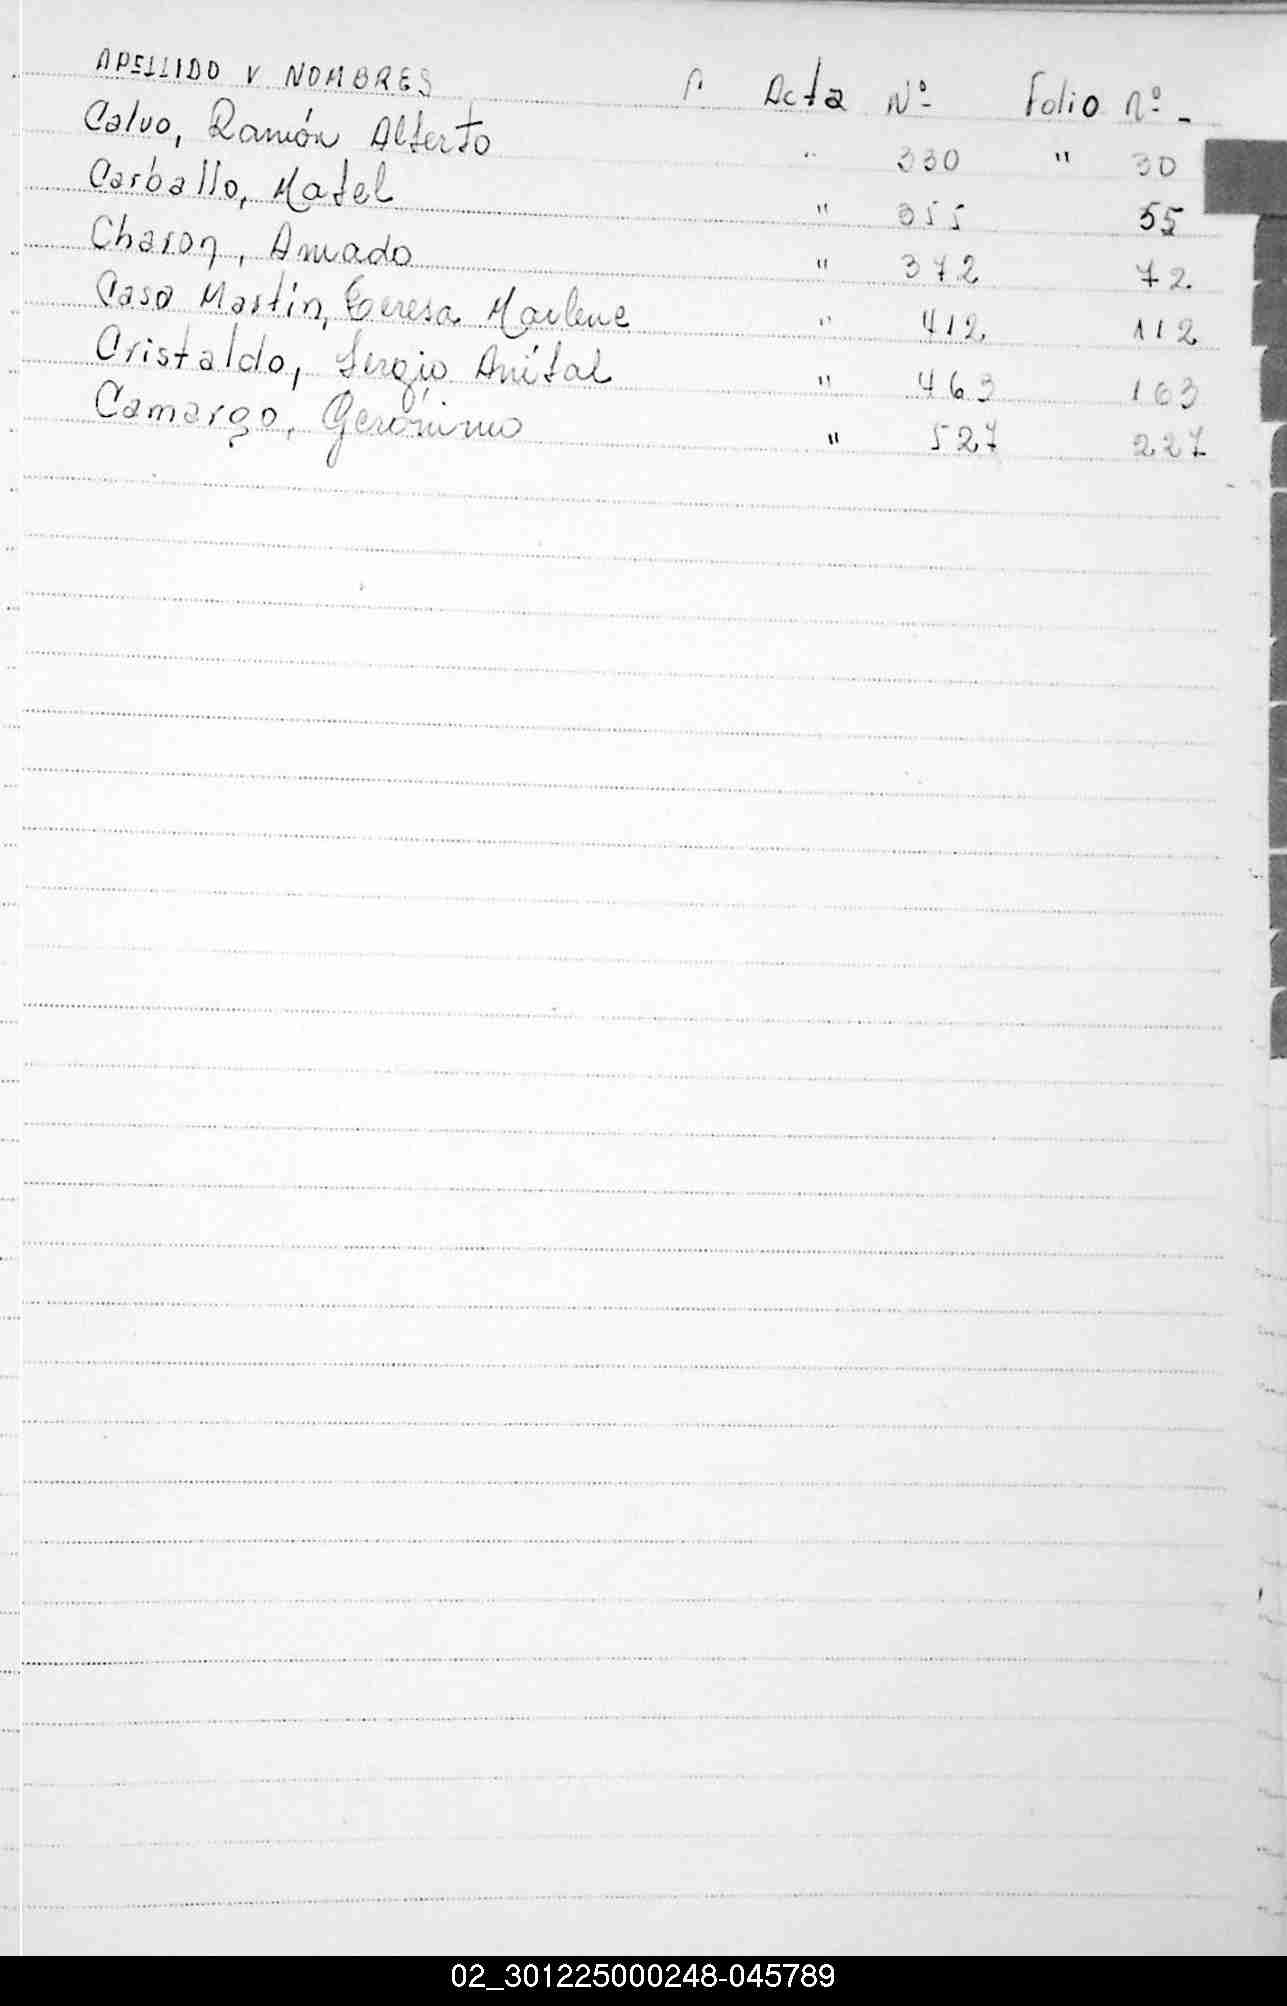 APELLIDO Y NOMBRES Acta Nº Folio nº -
Calvo, Ramón Alberto " 330 " 30
Carballo, Mabel " 355 55
Charon, Amado " 372 72.
Caso Martin, Teresa Marlene " 412 112
Cristaldo, Sergio Aníbal " 463 163
Camargo, Gerónimo " 527 227
02_301225000248-045789